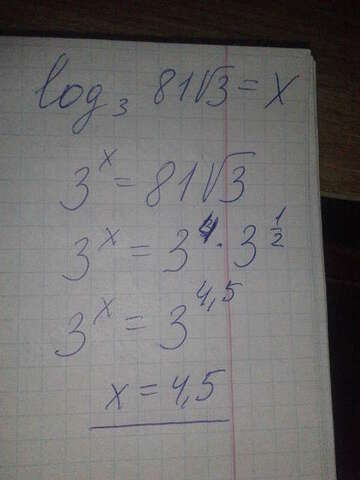 log₃ 81√3 = x
3ˣ = 81√3
3ˣ = 3⁴ · 3^(1/2)
3ˣ = 3^(4,5)
x = 4,5